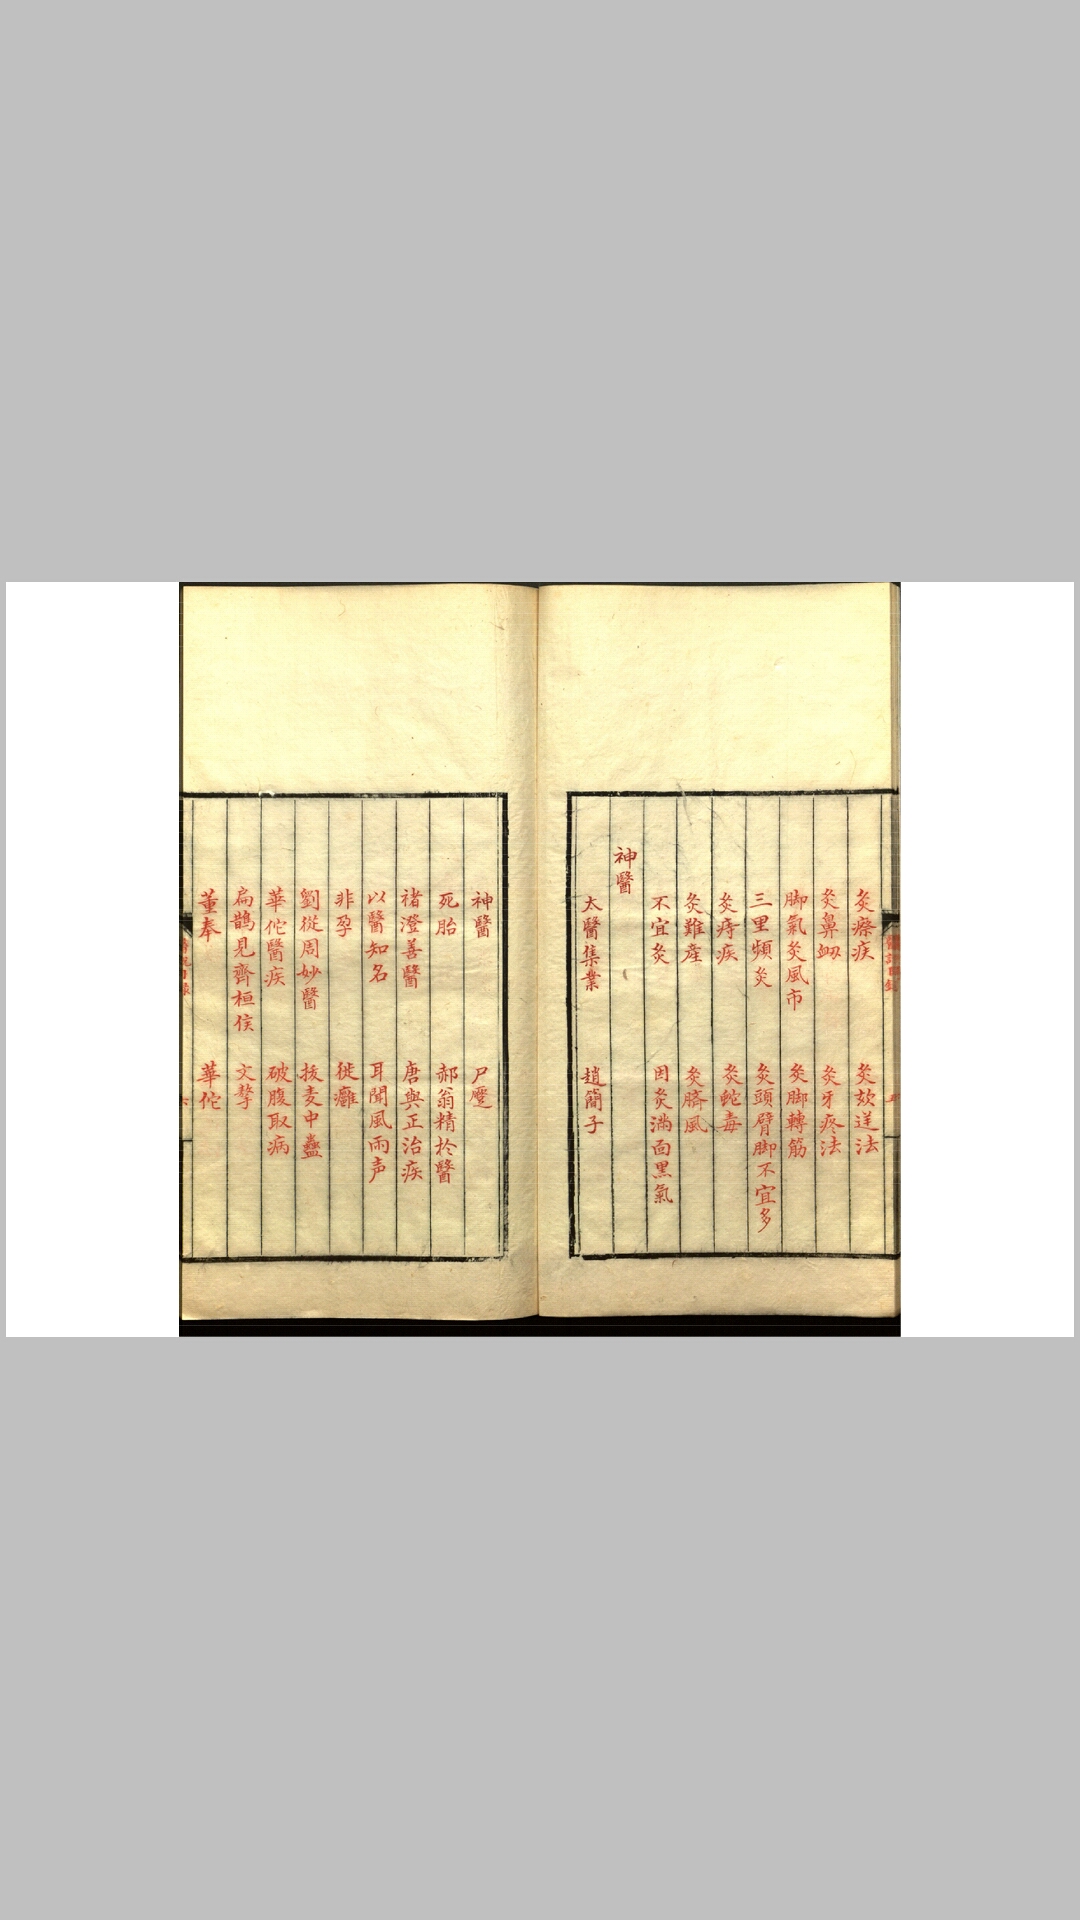 灸瘵疾　灸欬逆法
灸鼻衂　灸牙疼法
脚氣灸風市　灸脚轉筋
三里頻灸　灸頭臂脚不宜多
灸痔疾　灸蛇毒
灸難産　灸臍風
不宜灸　因灸滿面黒氣
神醫
太醫集業　趙簡子
神醫　尸蹷
死胎　郝翁精於醫
褚澄善醫　唐與正治疾
以醫知名　耳聞風雨声
非孕　徙癰
劉從周妙醫　拔麦中蠱
華佗醫疾　破腹取病
扁鵲見齊桓侯　文摯
董奉　華佗